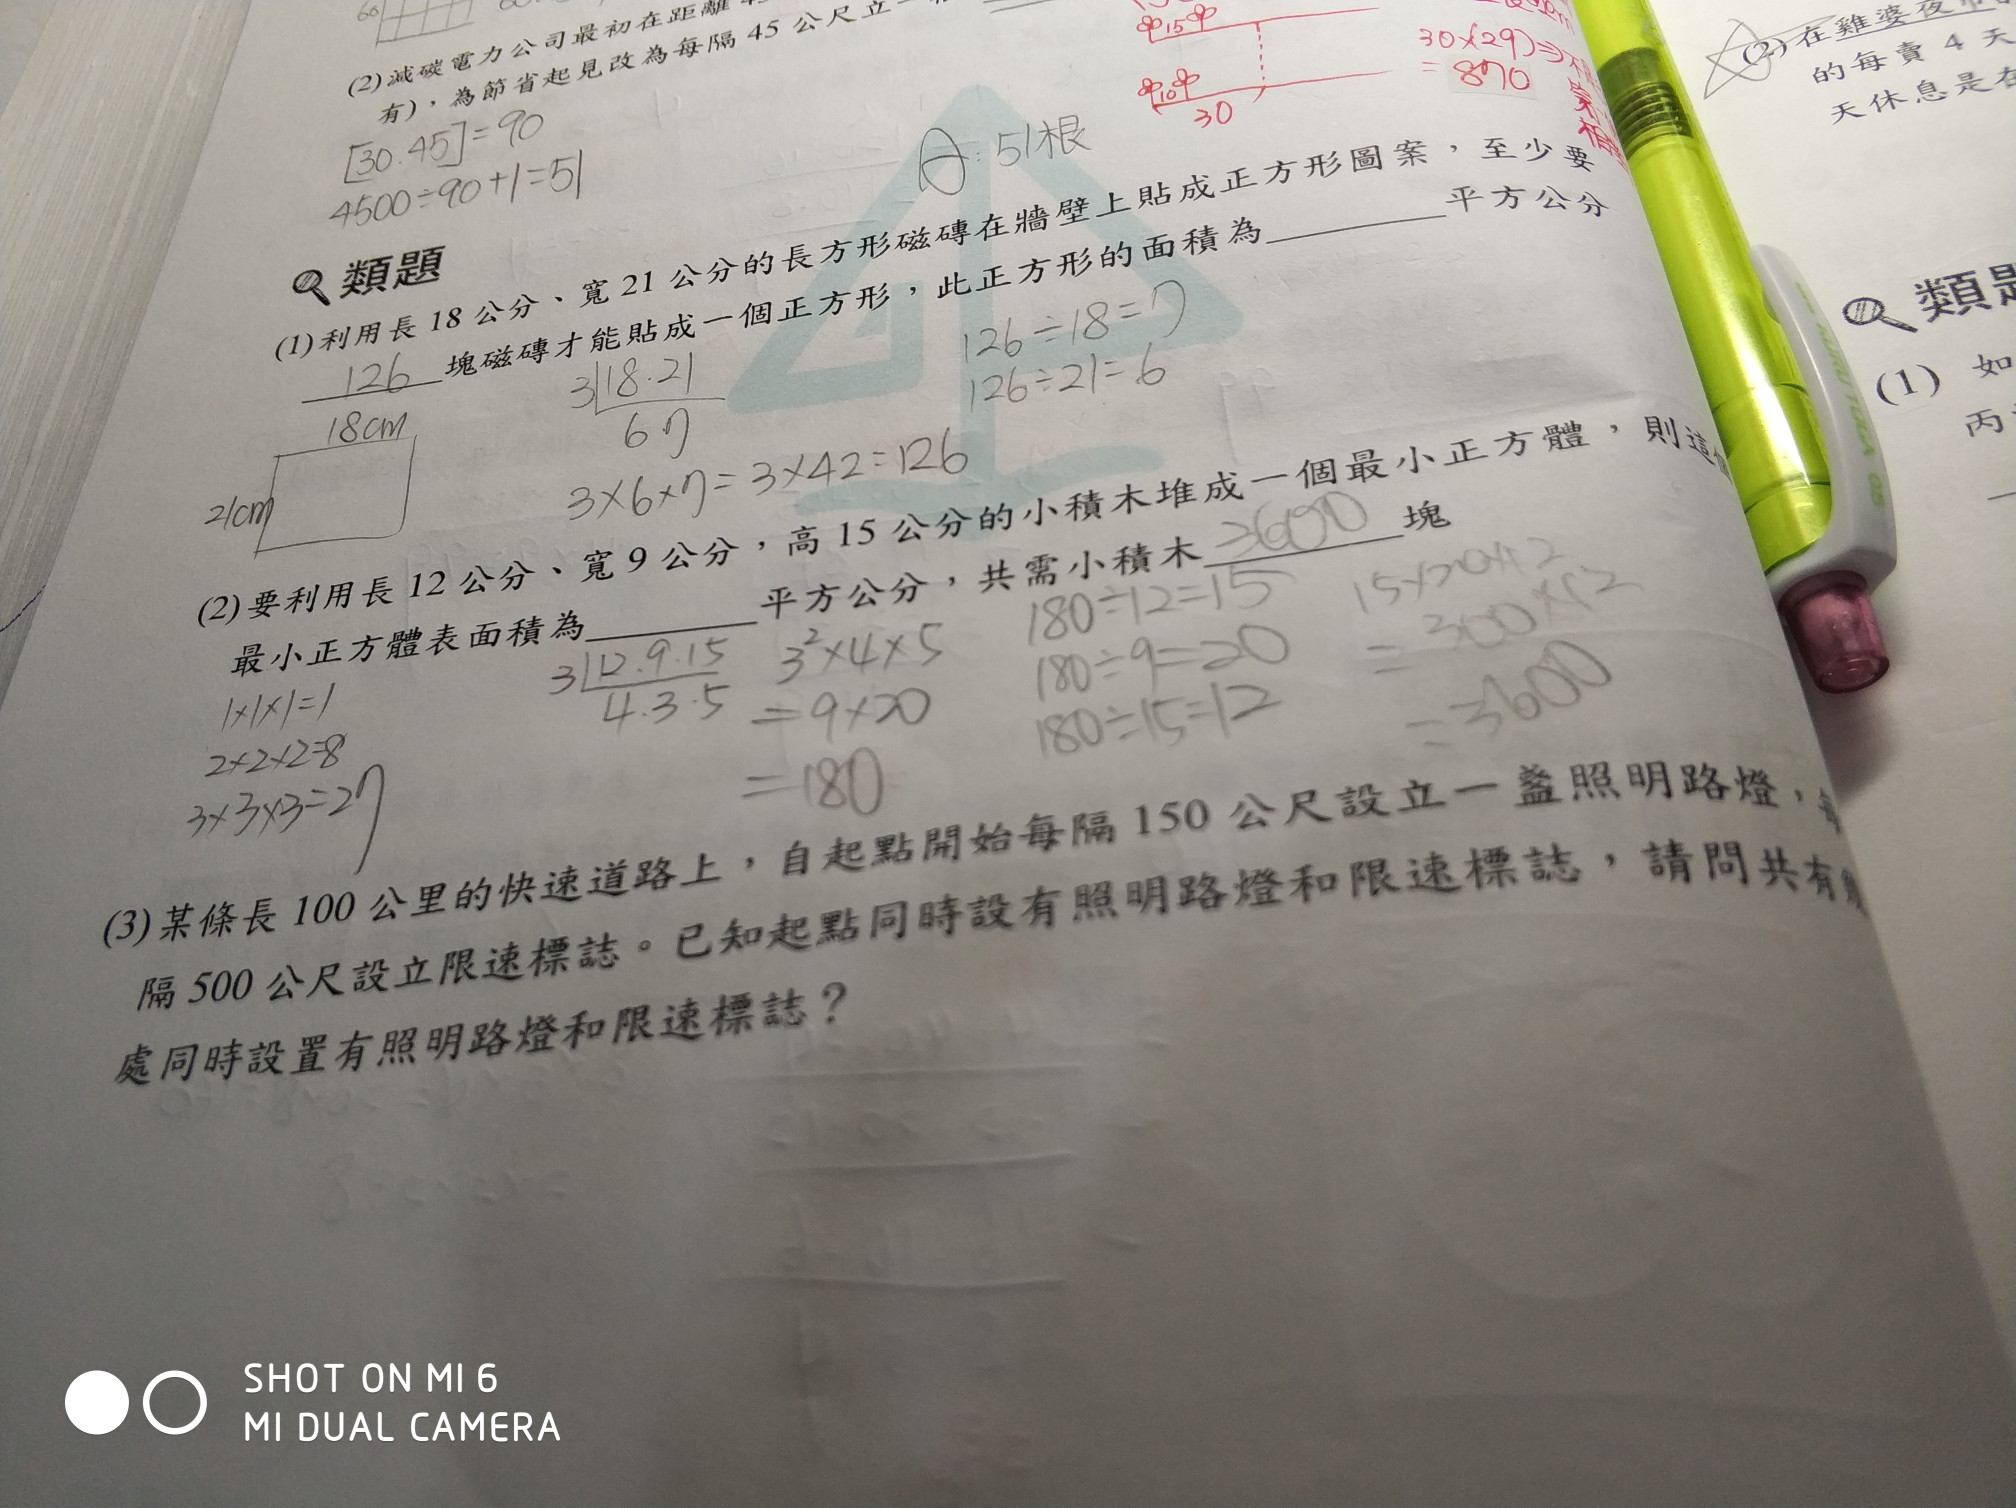 (2)減碳電力公司最初在距離
有)，為節省起見改為每隔 45 公尺立一
[30.45]=90
4500÷90+1=51
A：51根
中15中
中10中
30
30×(29)⇒不
=870
類題
(1)利用長 18 公分、寬 21 公分的長方形磁磚在牆壁上貼成正方形圖案，至少要
126 塊磁磚才能貼成一個正方形，此正方形的面積為______平方公分
18cm
21cm
3|18.21
6 7
3×6×7=3×42=126
126÷18=7
126÷21=6
(2)要利用長 12 公分、寬 9 公分，高 15 公分的小積木堆成一個最小正方體，則這個
最小正方體表面積為______平方公分，共需小積木 3600 塊
1×1×1=1
2×2×2=8
3×3×3=27
3|12.9.15
4.3.5
3²×4×5
=9×20
=180
180÷12=15
180÷9=20
180÷15=12
15×20×12
=300×12
=3600
(3)某條長 100 公里的快速道路上，自起點開始每隔 150 公尺設立一盞照明路燈，每
隔 500 公尺設立限速標誌。已知起點同時設有照明路燈和限速標誌，請問共有幾
處同時設置有照明路燈和限速標誌？
(2)在雞婆夜市
的每賣 4 天
天休息是在
類題
(1) 如
丙
SHOT ON MI 6
MI DUAL CAMERA